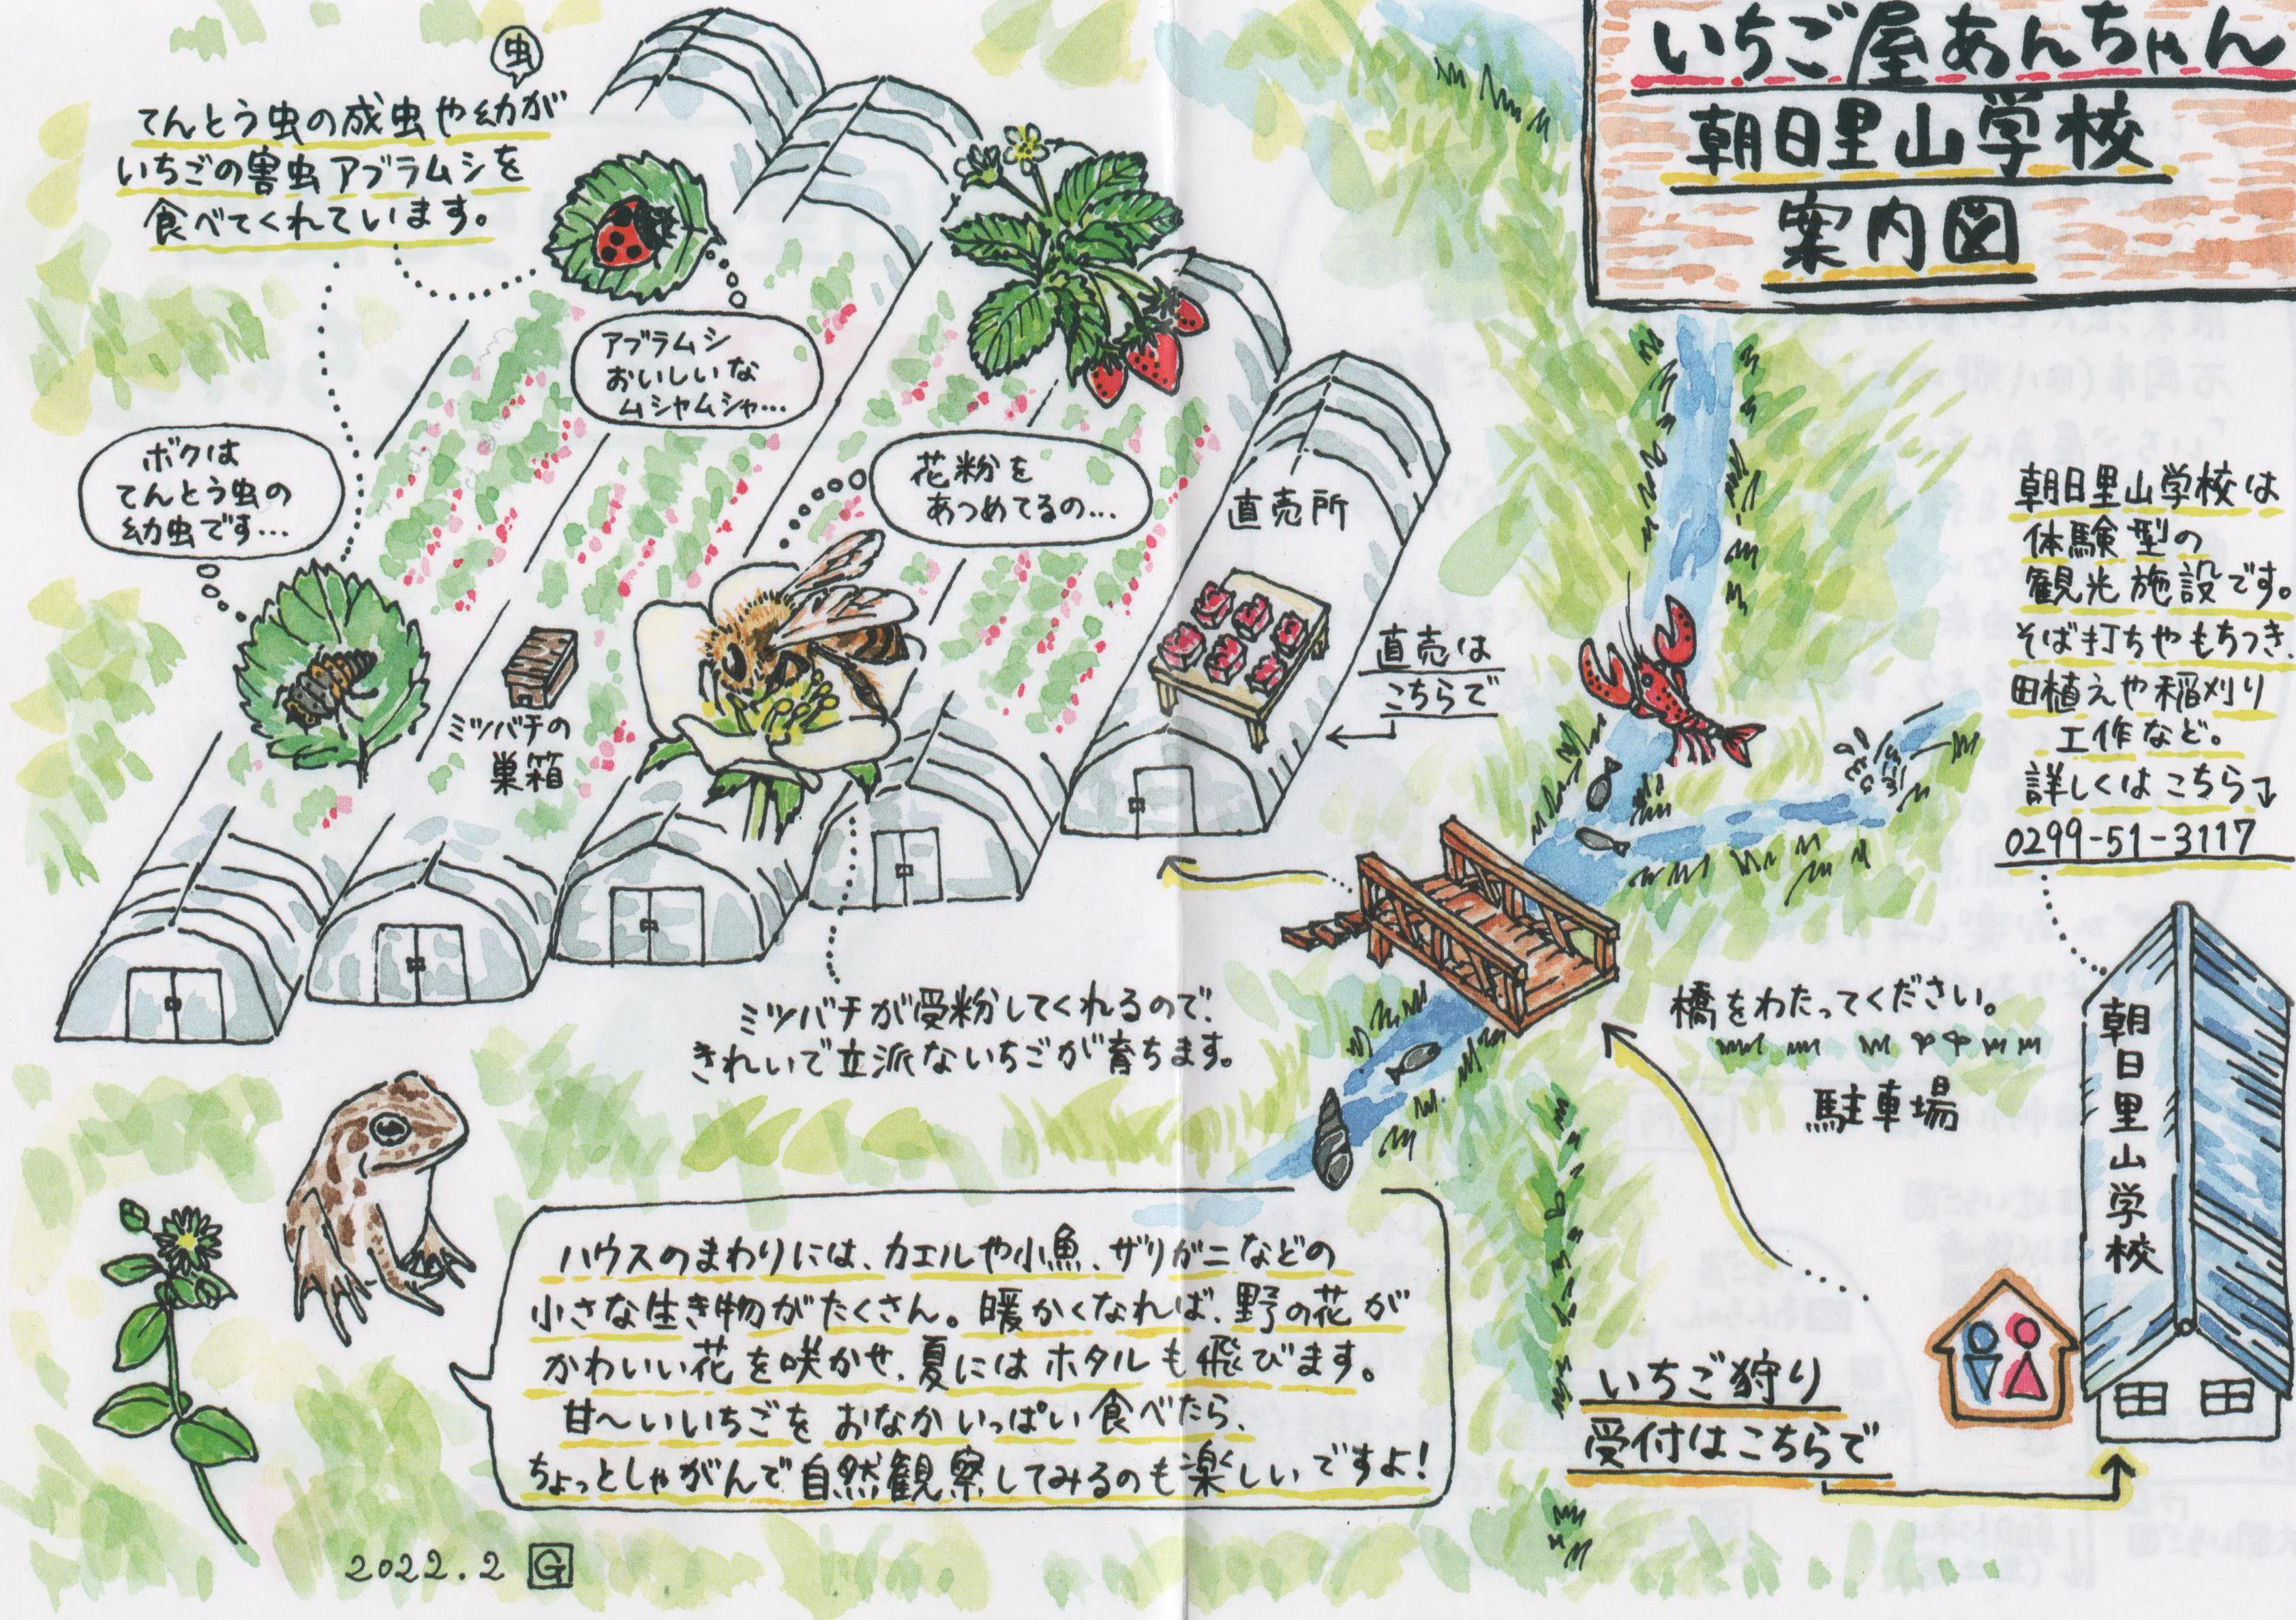 いちご屋あんちゃん
朝日里山学校
案内図
虫
てんとう虫の成虫や幼が
いちごの害虫アブラムシを
食べてくれています。
アブラムシ
おいしいな
ムシャムシャ…
ボクは
てんとう虫の
幼虫です…
花粉を
あつめてるの…
ミツバチの
巣箱
直売所
直売は
こちらで
朝日里山学校は
体験型の
観光施設です。
そば打ちやもちつき、
田植えや稲刈り
工作など。
詳しくはこちら
0299-51-3117
ミツバチが受粉してくれるので、
きれいで立派ないちごが育ちます。
橋をわたってください。
駐車場
朝日里山学校
ハウスのまわりには、カエルや小魚、ザリガニなどの
小さな生き物がたくさん。暖かくなれば、野の花が
かわいい花を咲かせ、夏にはホタルも飛びます。
甘〜いいちごをおなかいっぱい食べたら、
ちょっとしゃがんで自然観察してみるのも楽しいですよ!
いちご狩り
受付はこちらで
2022.2 G